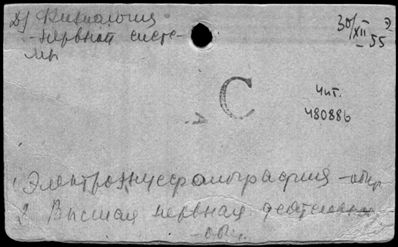 Д) Физиология
нервной систе-
мы
30/XII
-55
С
Чит.
480886
1. Электроэнцефалография - общ.
2. Высшая нервная деятельн.
- общ.